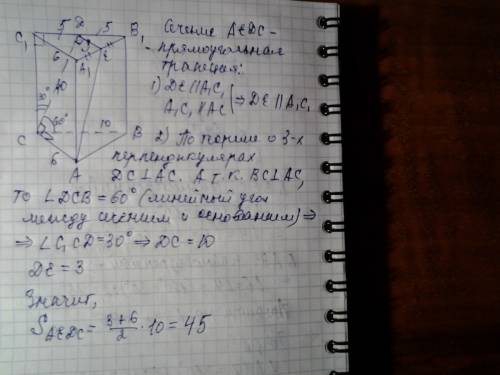 C₁ 5 D 5 B₁
6 A₁ E
10
30°
60°
C 10 B
6
A
Сечение AEDC -
прямоугольная
трапеция:
1) DE ∥ A₁C₁
A₁C₁ ∥ AC ⇒ DE ∥ A₁C₁
2) По теореме о 3-х
перпендикулярах
DC ⊥ AC. А т.к. BC ⊥ AC,
то ∠DCB = 60° (линейный угол
между сечением и основанием) ⇒
⇒ ∠C₁CD = 30° ⇒ DC = 10
DE = 3
Значит,
S_AEDC = (3+6)/2 · 10 = 45